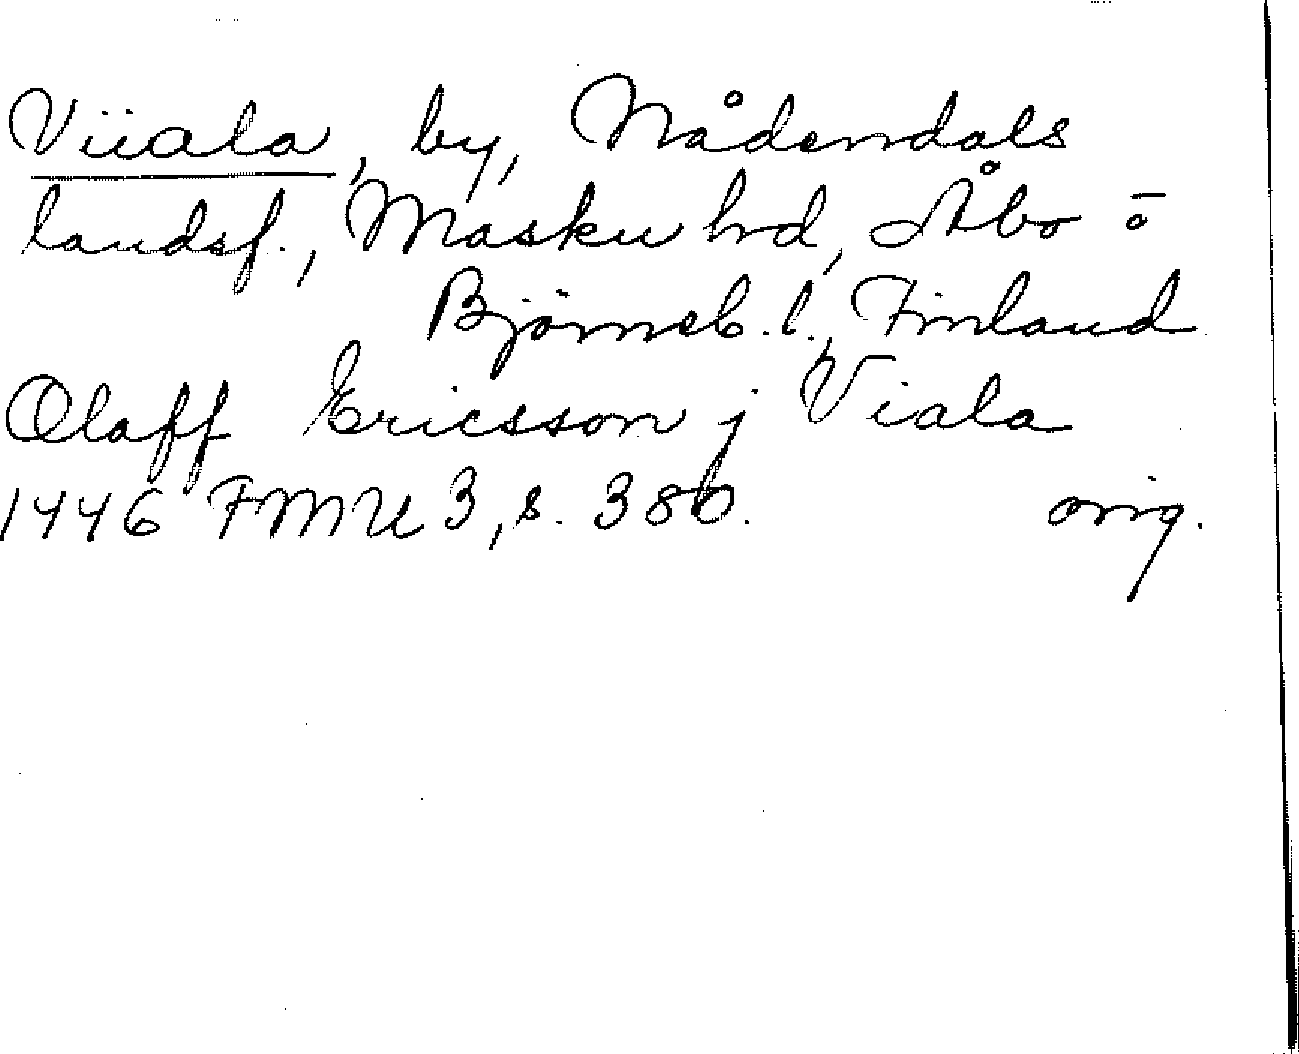 Viiala, by, Nådendals
landsf., Masku hd, Åbo o
Björneb. l., Finland
Olaff Ericsson j Viala
1446 FMU 3, s. 380. orig.